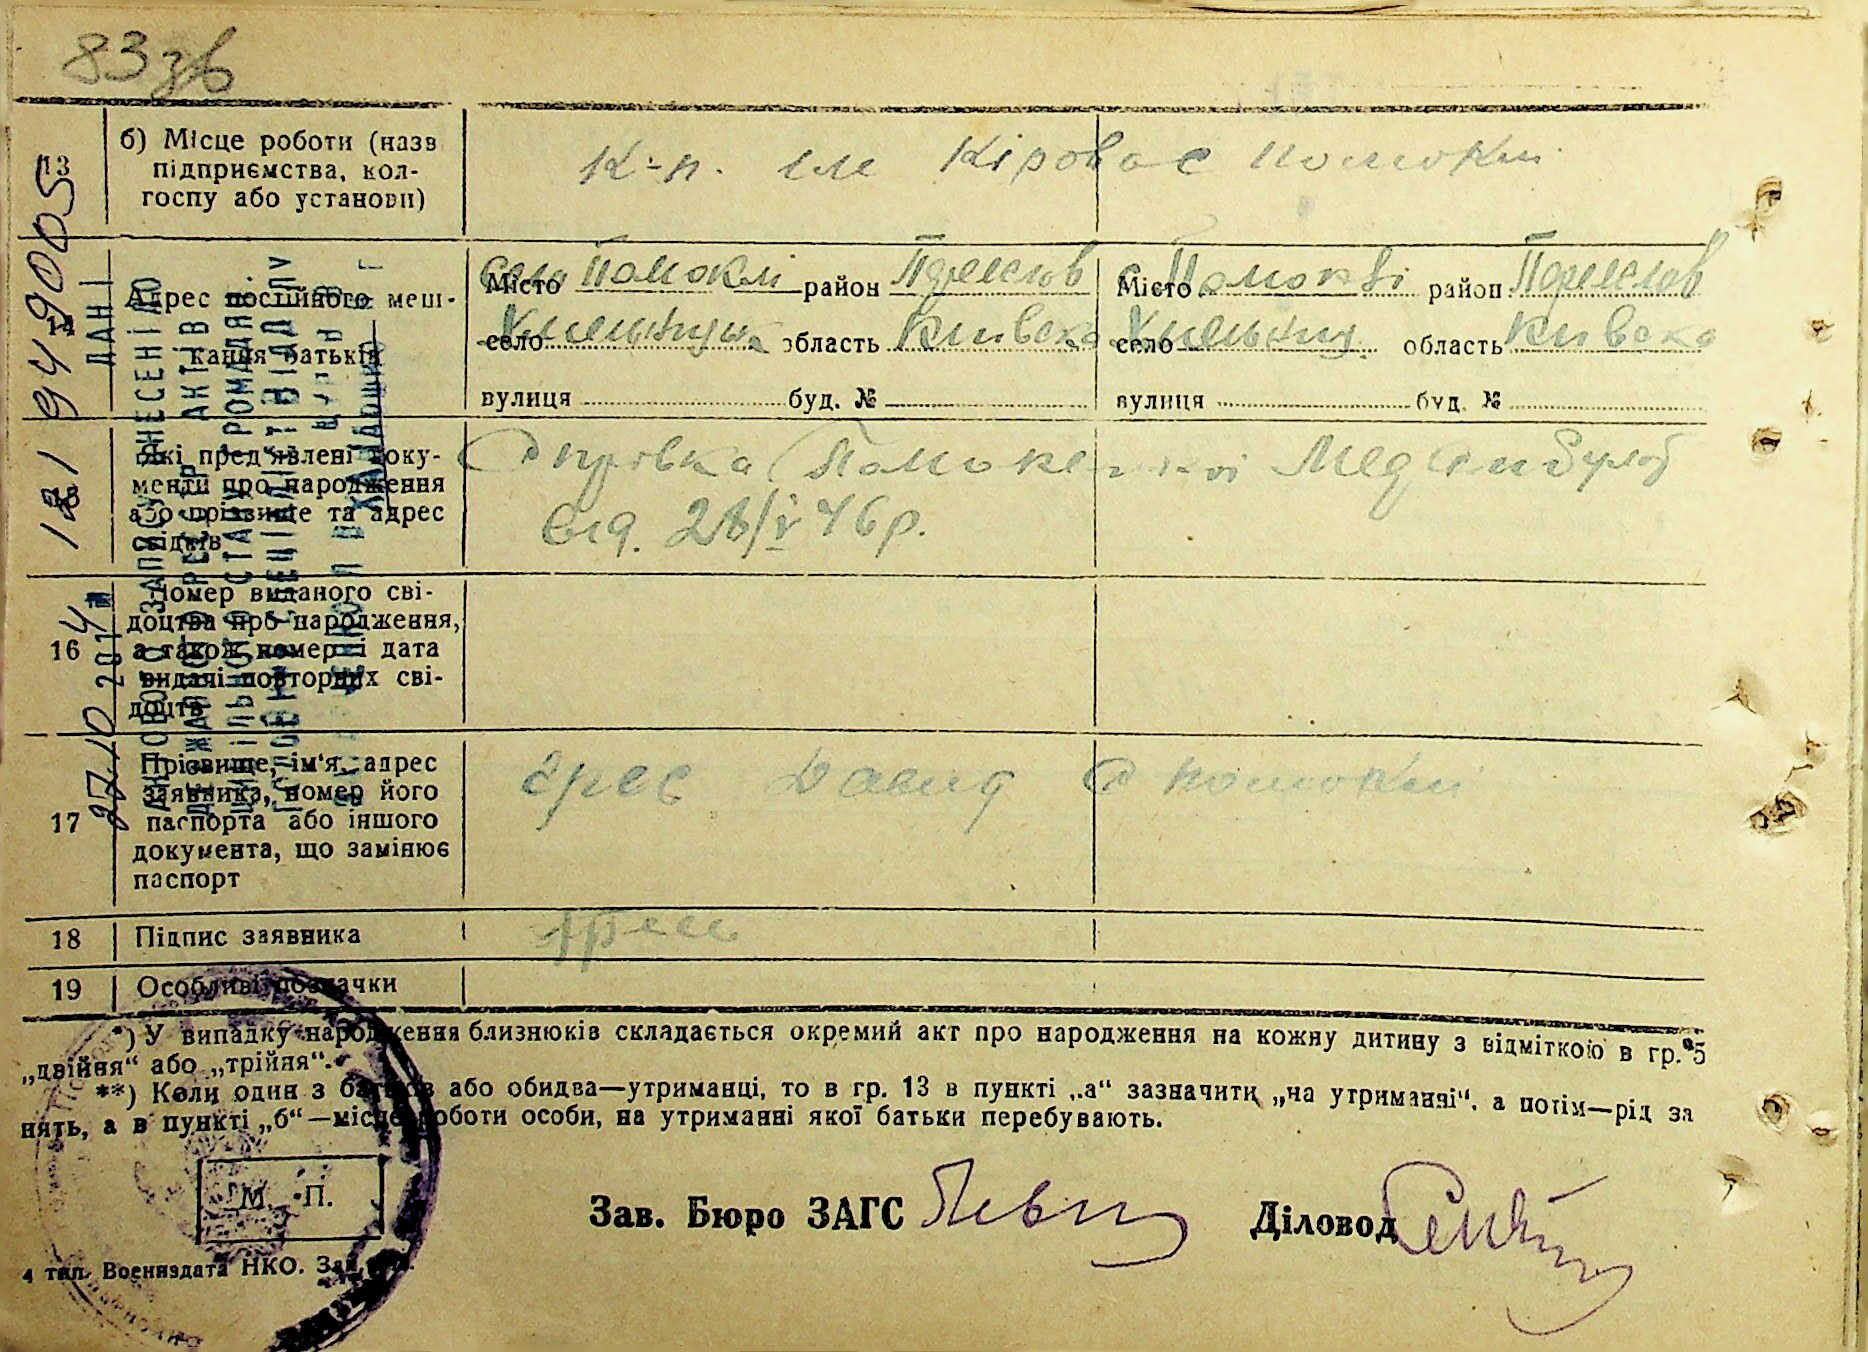 83 зв
13
б) Місце роботи (назв
підприємства, кол-
госпу або установи)
к-п. ім Кірова с Помоклі
14
Адрес постійного меш-
кання батьків
Місто село Помоклі район Переяслав
село Хмельницьк область Київска
вулиця буд. №
Місто с Помоклі район Переяслав
село Хмельниц. область Київска
вулиця буд. №
15
Які пред'явлені доку-
менти про народження
або прізвище та адрес
свідків
Справка Помокельскої Медамбулат
від. 28/V 46 р.
16
Номер виданого сві-
доцтва про народження,
а також номер і дата
видачі повторних сві-
доцтв
17
Прізвище, ім'я, адрес
заявника, номер його
паспорта або іншого
документа, що замінює
паспорт
Ерес Давид с Помоклі
18
Підпис заявника
19
Особливі позначки
*) У випадку народження близнюків складається окремий акт про народження на кожну дитину з відміткою в гр. 5
„двійня“ або „трійня“.
**) Коли один з батьків або обидва—утриманці, то в гр. 13 в пункті „а“ зазначити „на утриманні“, а потім—рід за
нять, а в пункті „б“—місце роботи особи, на утриманні якої батьки перебувають.
М. П.
Зав. Бюро ЗАГС
Діловод
4 тип. Воениздата НКО. Зак.
ДАНІ
АКТОВОГО ЗАПИСУ ВНЕСЕНІ ДО
ДЕРЖАВНОГО РЕЄСТРУ АКТІВ
ЦИВІЛЬНОГО СТАНУ ГРОМАДЯН.
ГОЛОВНИЙ СПЕЦІАЛІСТ ВІДДІЛУ
27 10 2014